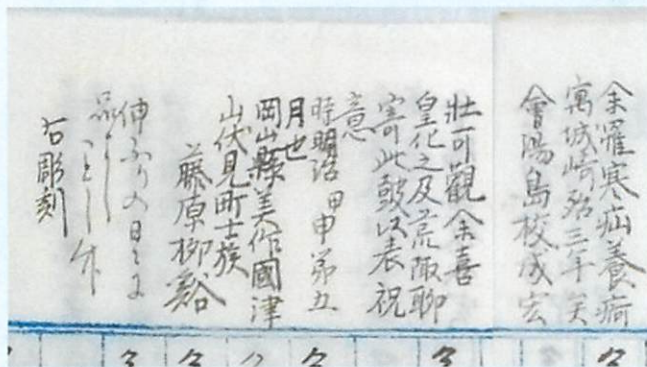 余罹寒疝養痾
寓城崎殆三年矣
會湯島校成宏
壮可觀余喜
皇化之及荒陬聊
寄此皷以表祝
意
時明治甲申第五
月也
岡山縣美作國津
山伏見町士族
藤原柳谿
伸ふりの日々に
右彫刻